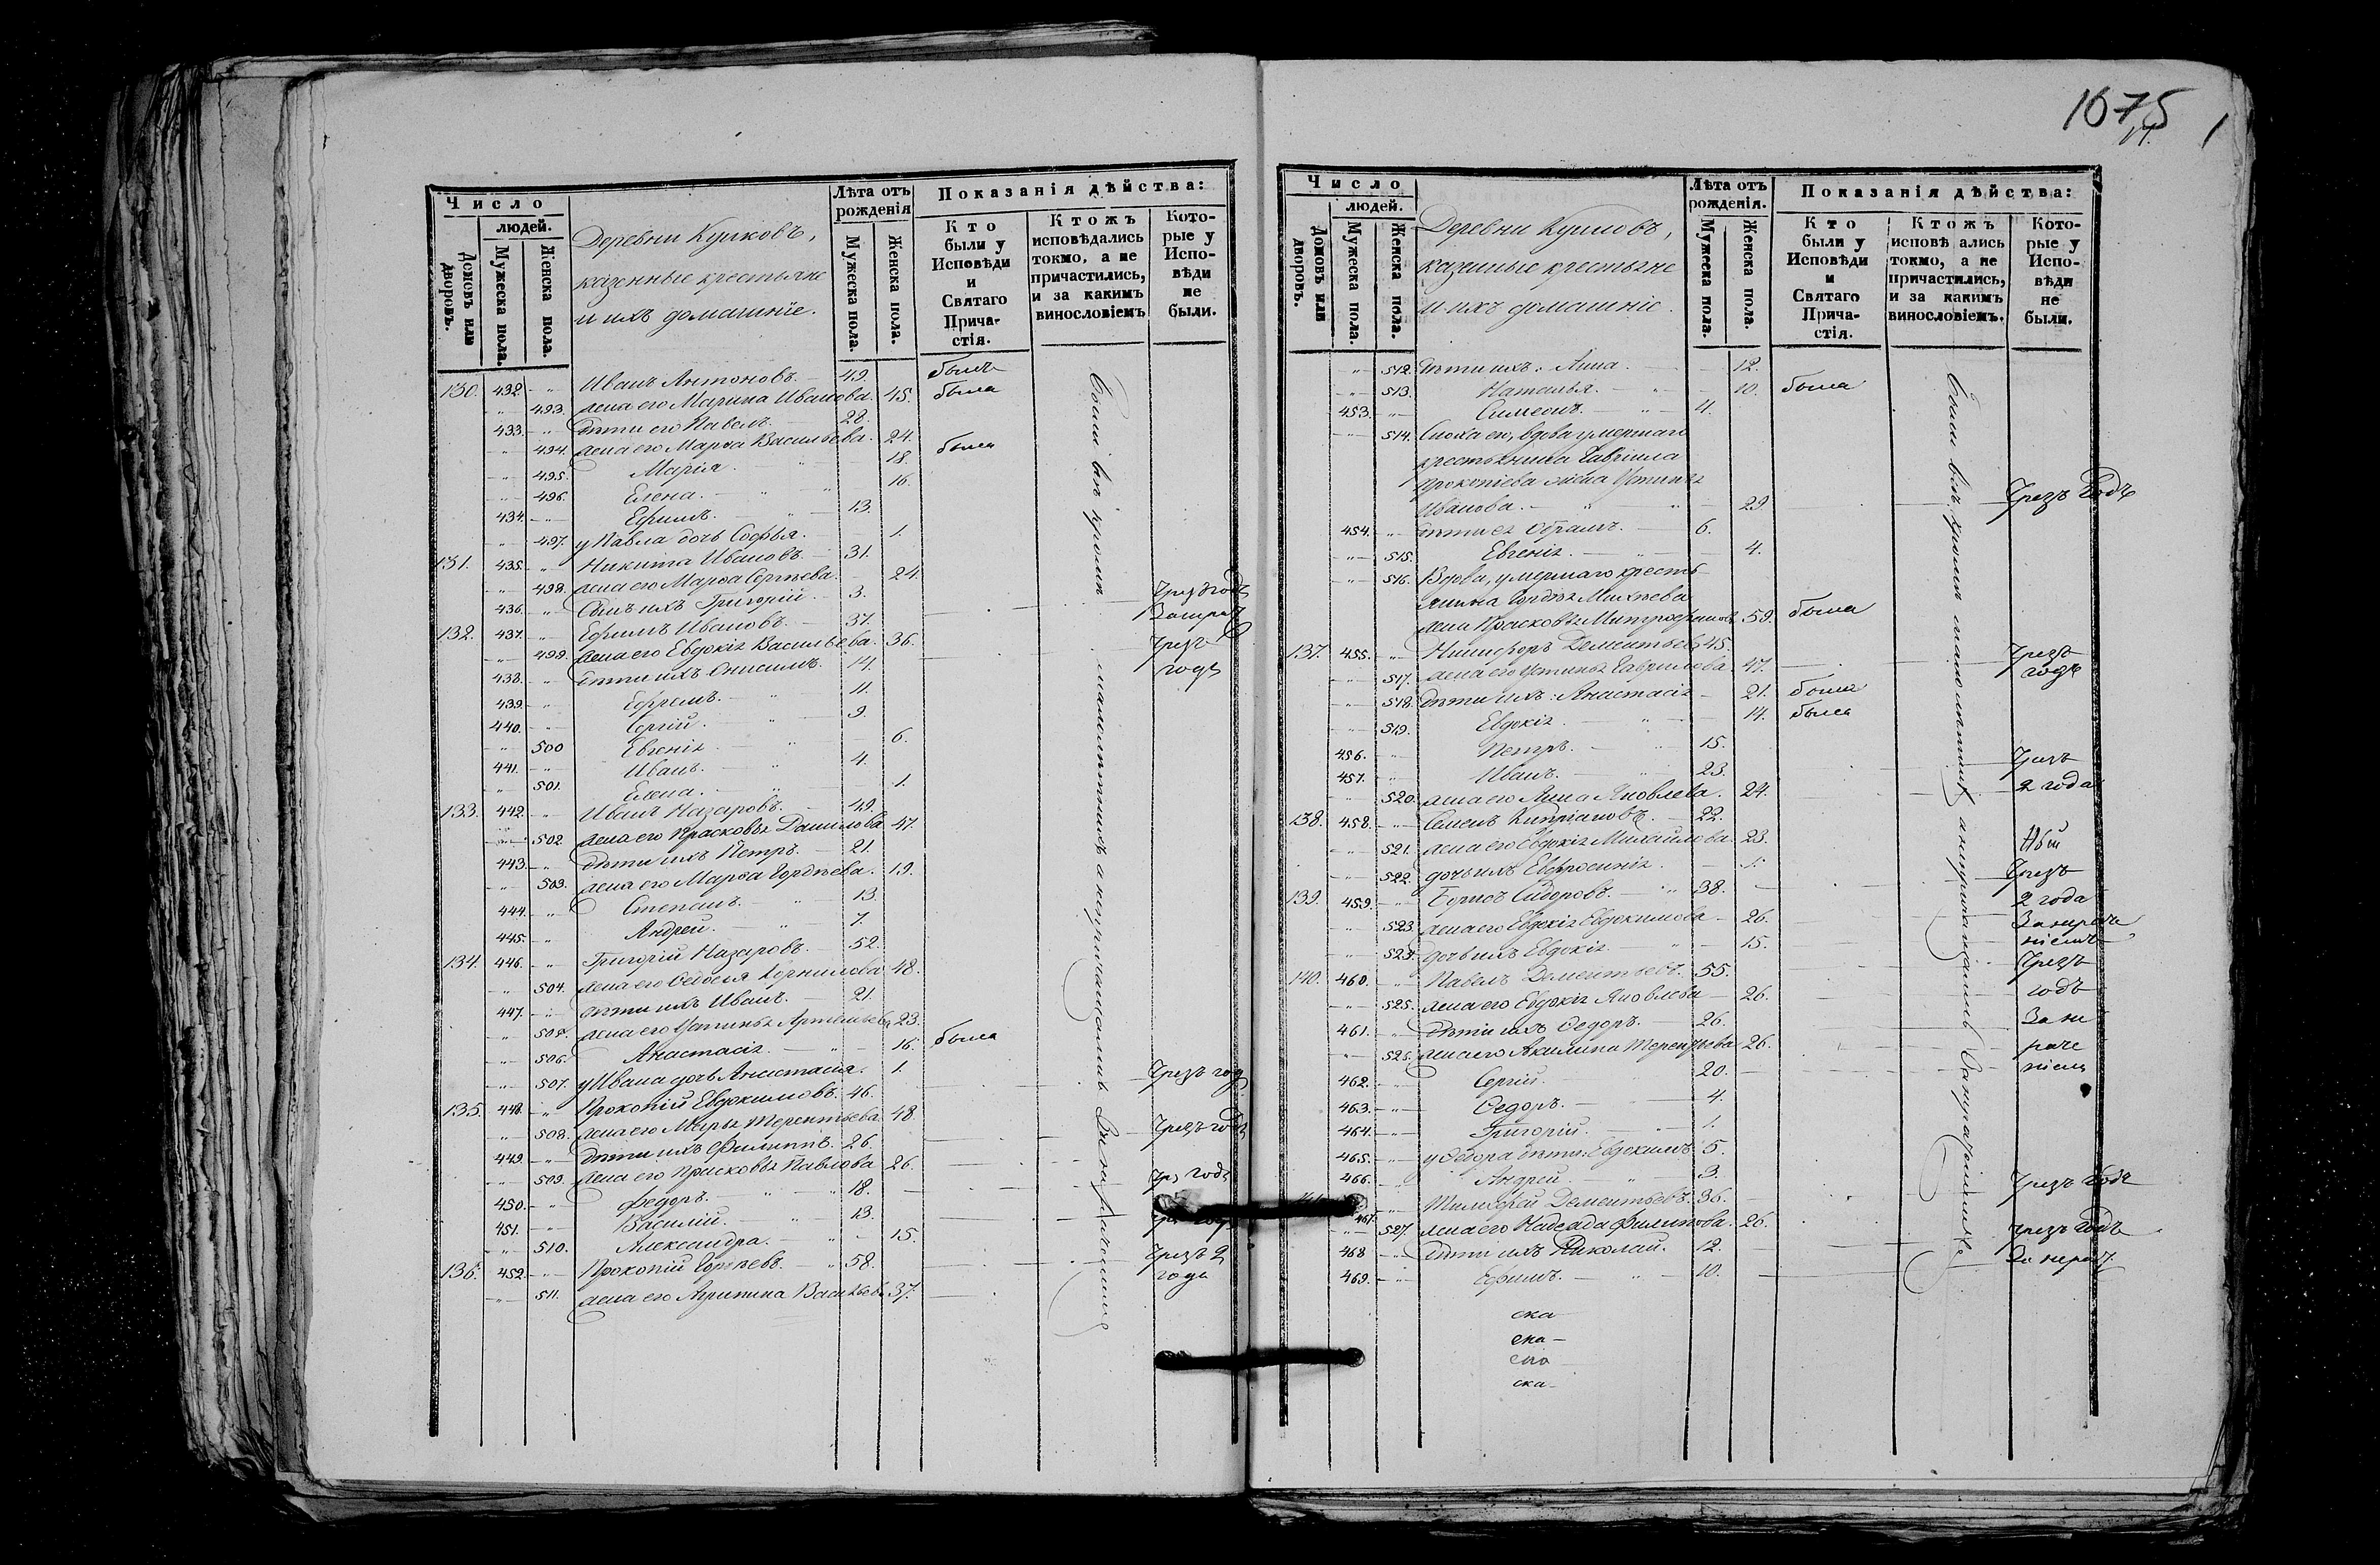 1675
Число
людей.
Домовъ или дворовъ.
Мужеска пола.
Женска пола.
Деревни Куликовъ,
казенные крестьяне
и ихъ домашніе.
Лѣта отъ рожденія
Мужеска пола.
Женска пола.
Показанія дѣйства:
Кто были у Исповѣди и Святаго Прича-стія.
Ктожъ исповѣдались токмо, а не причастились, и за какимъ винословіемъ
Кото-рые у Испо-вѣди не были.
130. 432. Иванъ Антоновъ. 49. былъ
493. жена его Марина Иванова. 45. была
433. дѣти его Павелъ. 22.
494. жена его Марѳа Васильева. 24. была
495. Марія. 18.
496. Елена. 16.
434. Ефимъ. 13.
497. у Павла дочь Софья. 1.
131. 435. Никита Ивановъ. 31.
498. жена его Марѳа Сергѣева. 24.
436. Сынъ ихъ Григорій. 3. Чрез годъ
132. 437. Ефимъ Ивановъ. 37.
499. жена его Евдокія Васильева. 36. Чрезъ
438. дѣти ихъ Онисимъ. 14. годъ
439. Ефремъ. 11.
440. Сергій. 9.
500 Евгенія. 6.
441. Иванъ. 4.
501. Елена. 1.
133. 442. Иванъ Назаровъ. 49.
502 жена его Прасковья Данилова 47.
443. дѣти ихъ Петръ. 21.
503. жена его Марѳа Гордѣева. 19.
444. Степанъ. 13.
445. Андрей. 7.
134. 446. Григорій Назаровъ. 52.
504. жена его Ѳедосья Корнилова 48.
447. дѣти ихъ Иванъ. 21.
505. жена его Устинья Артемьева 23.
506. Анастасія. 16. была
507. у Ивана дочь Анастасія. 1.
135. 448. Прокопій Евдокимовъ. 46. Чрезъ год
508. жена его Марья Терентьева 48
449. дѣти ихъ Филиппъ. 26. Чрезъ годъ
509. жена его Прасковья Павлова 26.
450. Федоръ. 18. годъ
451. Василій. 13.
510. Александра. 15.
136. 452. Прокопій Гордѣевъ. 58. Чрезъ 2
511. жена его Агрипина Васильева 37. года
Были всѣ кромѣ малолѣтнихъ а непричащались
Число
людей.
Домовъ или дворовъ.
Мужеска пола.
Женска пола.
Деревни Куликовъ,
казенные крестьяне
и ихъ домашніе.
Лѣта отъ рожденія.
Мужеска пола.
Женска пола.
Показанія дѣйства:
Кто были у Исповѣди и Святаго Прича-стія.
Ктожъ исповѣ ались токмо, а не причастились, и за какимъ винословіемъ.
Кото-рые у Испо-вѣди не были.
512. дѣти ихъ: Анна. 12.
513. Наталья. 10. была
453. Симеонъ. 4.
514. Сноха ею, вдова умершаго
крестьянина Гавріила
Прокопіева жена Устинья
Иванова. 29. Чрезъ Годъ
454. дѣти ея Абрамъ. 6.
515. Евгенія. 4.
516. Вдова, умершаго кресть-
янина Гордѣя Михѣева
жена Прасковья Митрофанова 59. была
137. 455. Никифоръ Дементьевъ 45. Чрезъ
517. жена его Устинья Гаврилова 47. годъ
518. дѣти ихъ: Анастасія 21. была
519. Евдокія. 14. была
456. Петръ. 15.
457. Иванъ. 23. Чрезъ
520. жена его Анна Яковлева. 24. 2 года
138. 458. Семенъ Кипріановъ. 22.
521. жена его Евдокія Михайлова 23.
522. дочь ихъ Евфросинія. 1.
139. 459. Борисъ Сидоровъ. 38. Чрезъ 2 года
523 жена его Евдокія Евдокимова 26.
523. дочь ихъ Евдокія. 15.
140. 460. Павелъ Дементьевъ. 55. Чрезъ
525. жена его Евдокія Яковлева 26. годъ
461. дѣти ихъ Ѳедоръ. 26. За не
525. жена его Акилина Терентьева 26. раче
462. Сергій. 20. ніемъ
463. Ѳедоръ. 4.
464. Григорій. 1.
465. у Ѳедора дѣти: Евдокимъ 5.
466. Андрей. 3.
467. Тимоѳей Дементьевъ. 36. Чрезъ Годъ
527. жена его Надежда Филипова. 26.
468 дѣти ихъ Николай. 12. Чрезъ годъ
469. Ефимъ. 10. За нерач.
Были всѣ, кромѣ малолѣтнихъ, а непричащались За нераченіемъ
ска
ска-
ска
ска-